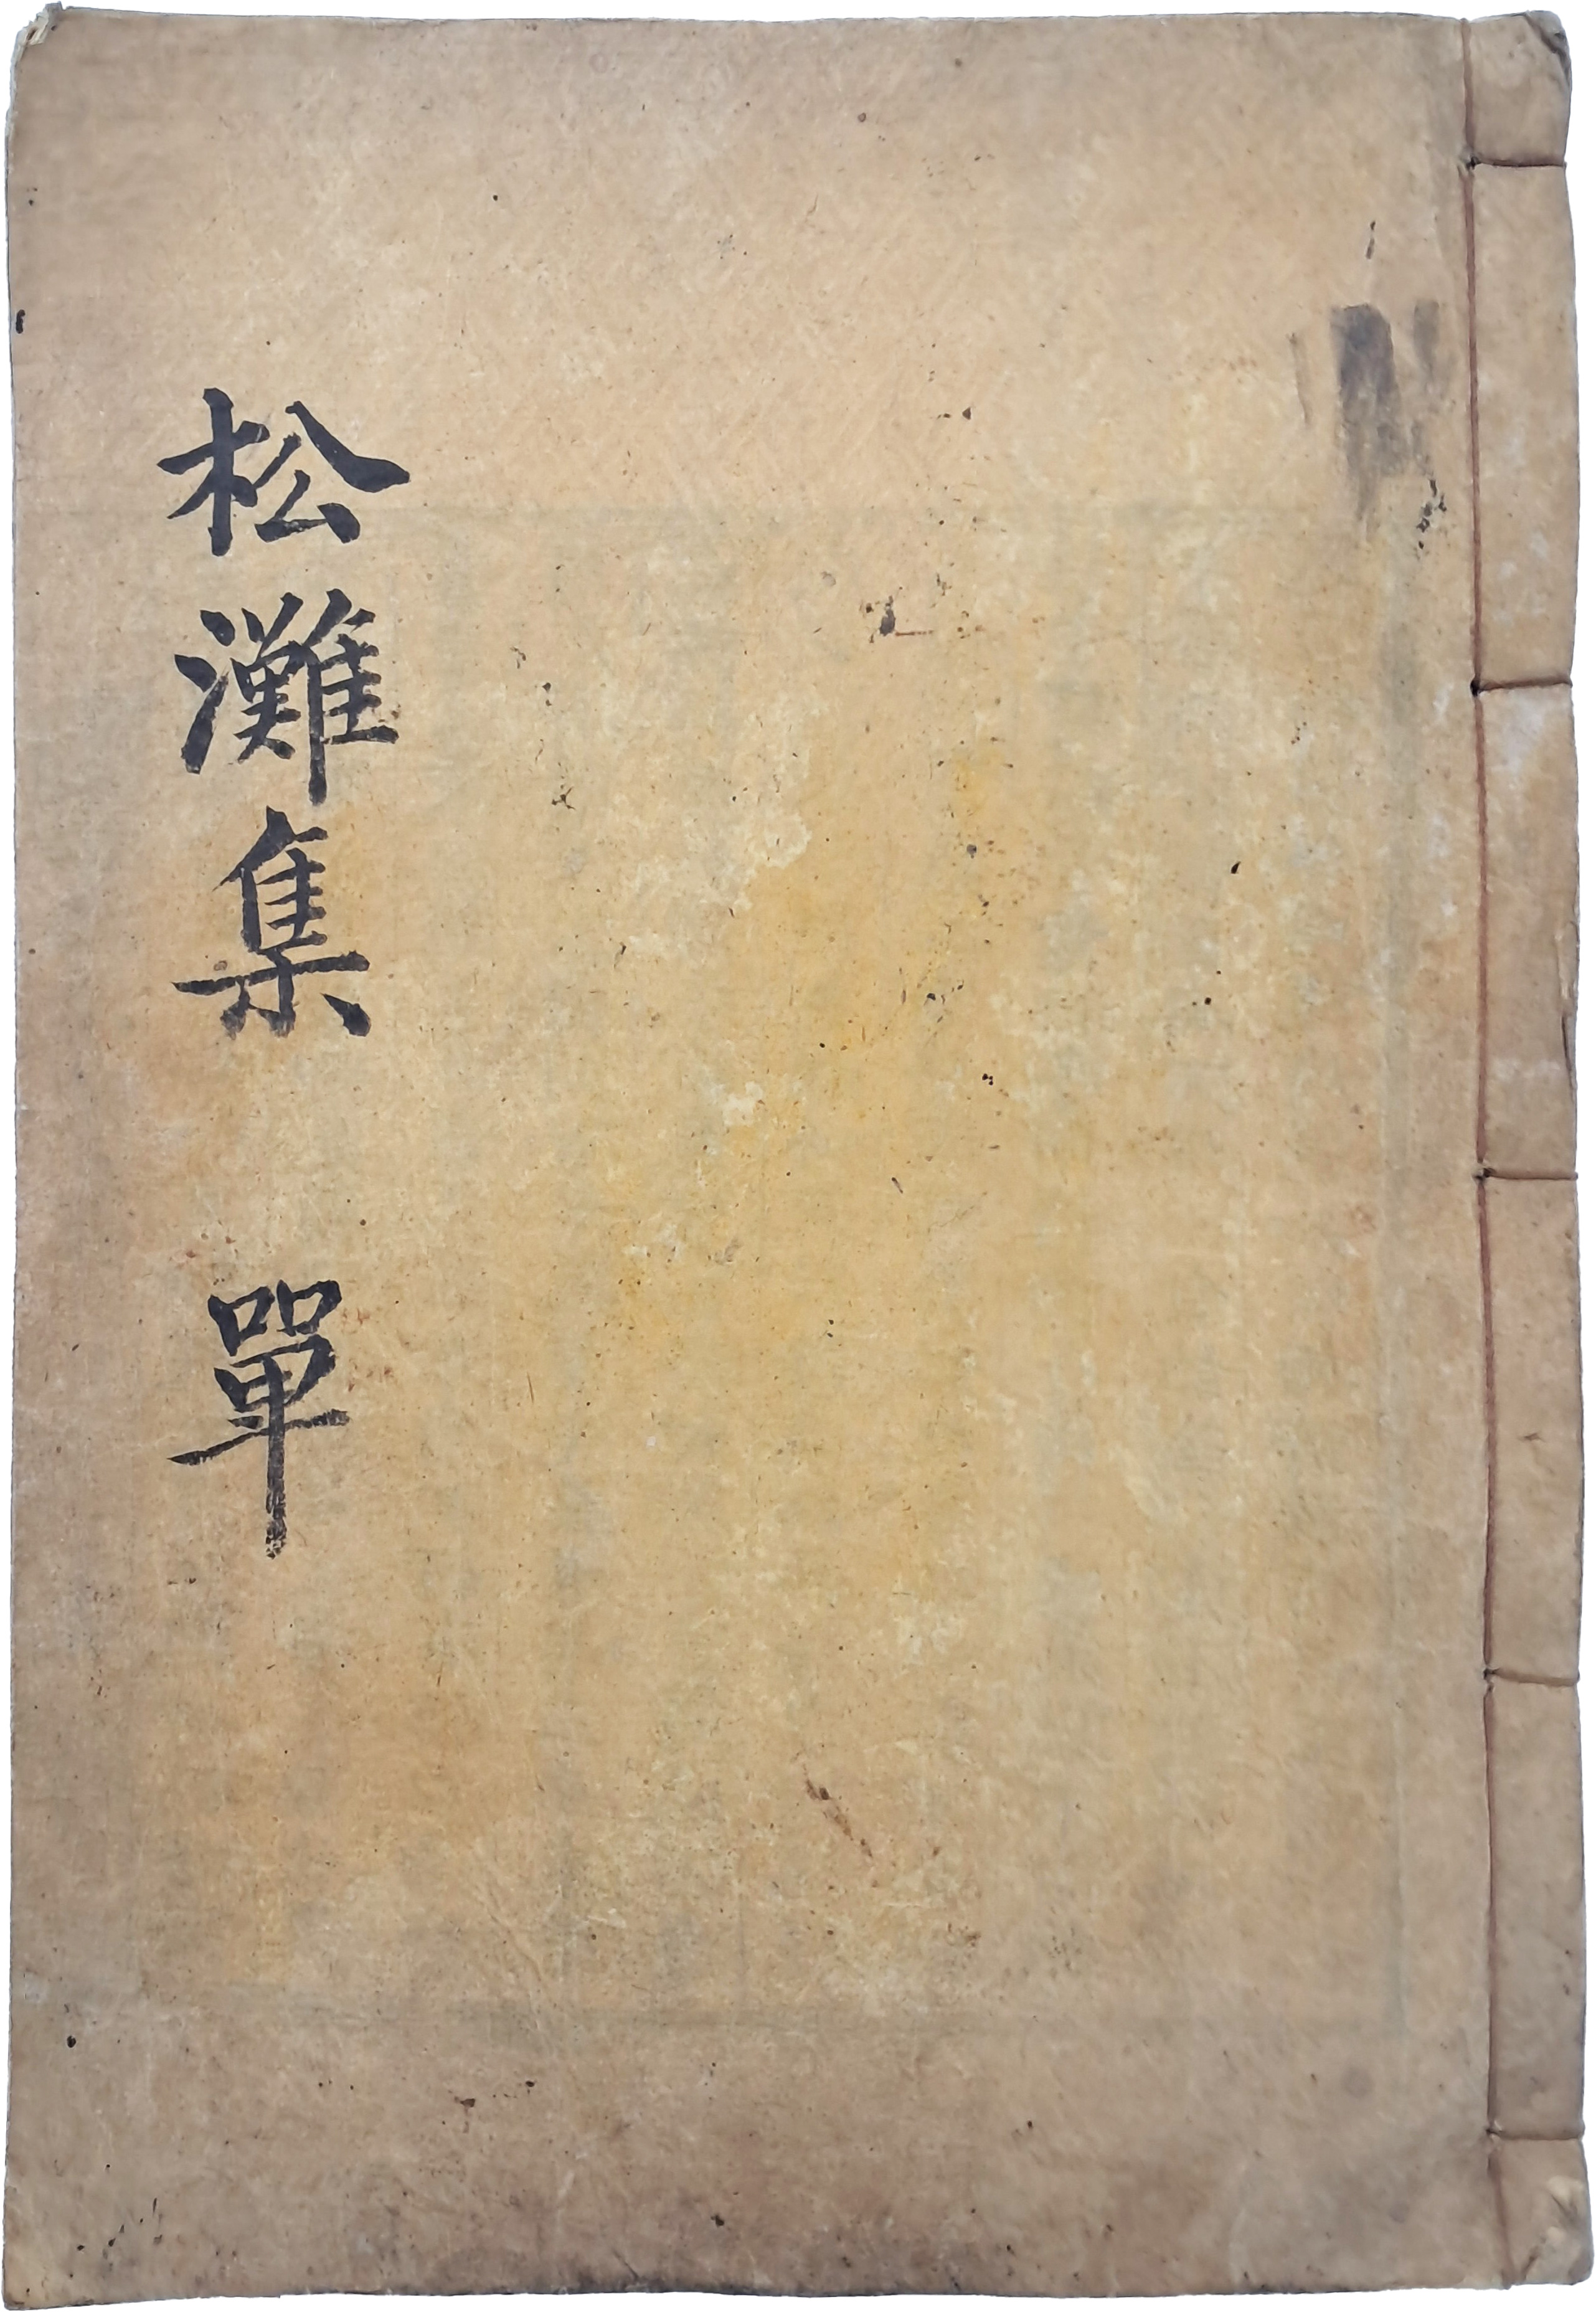 松灘集 單